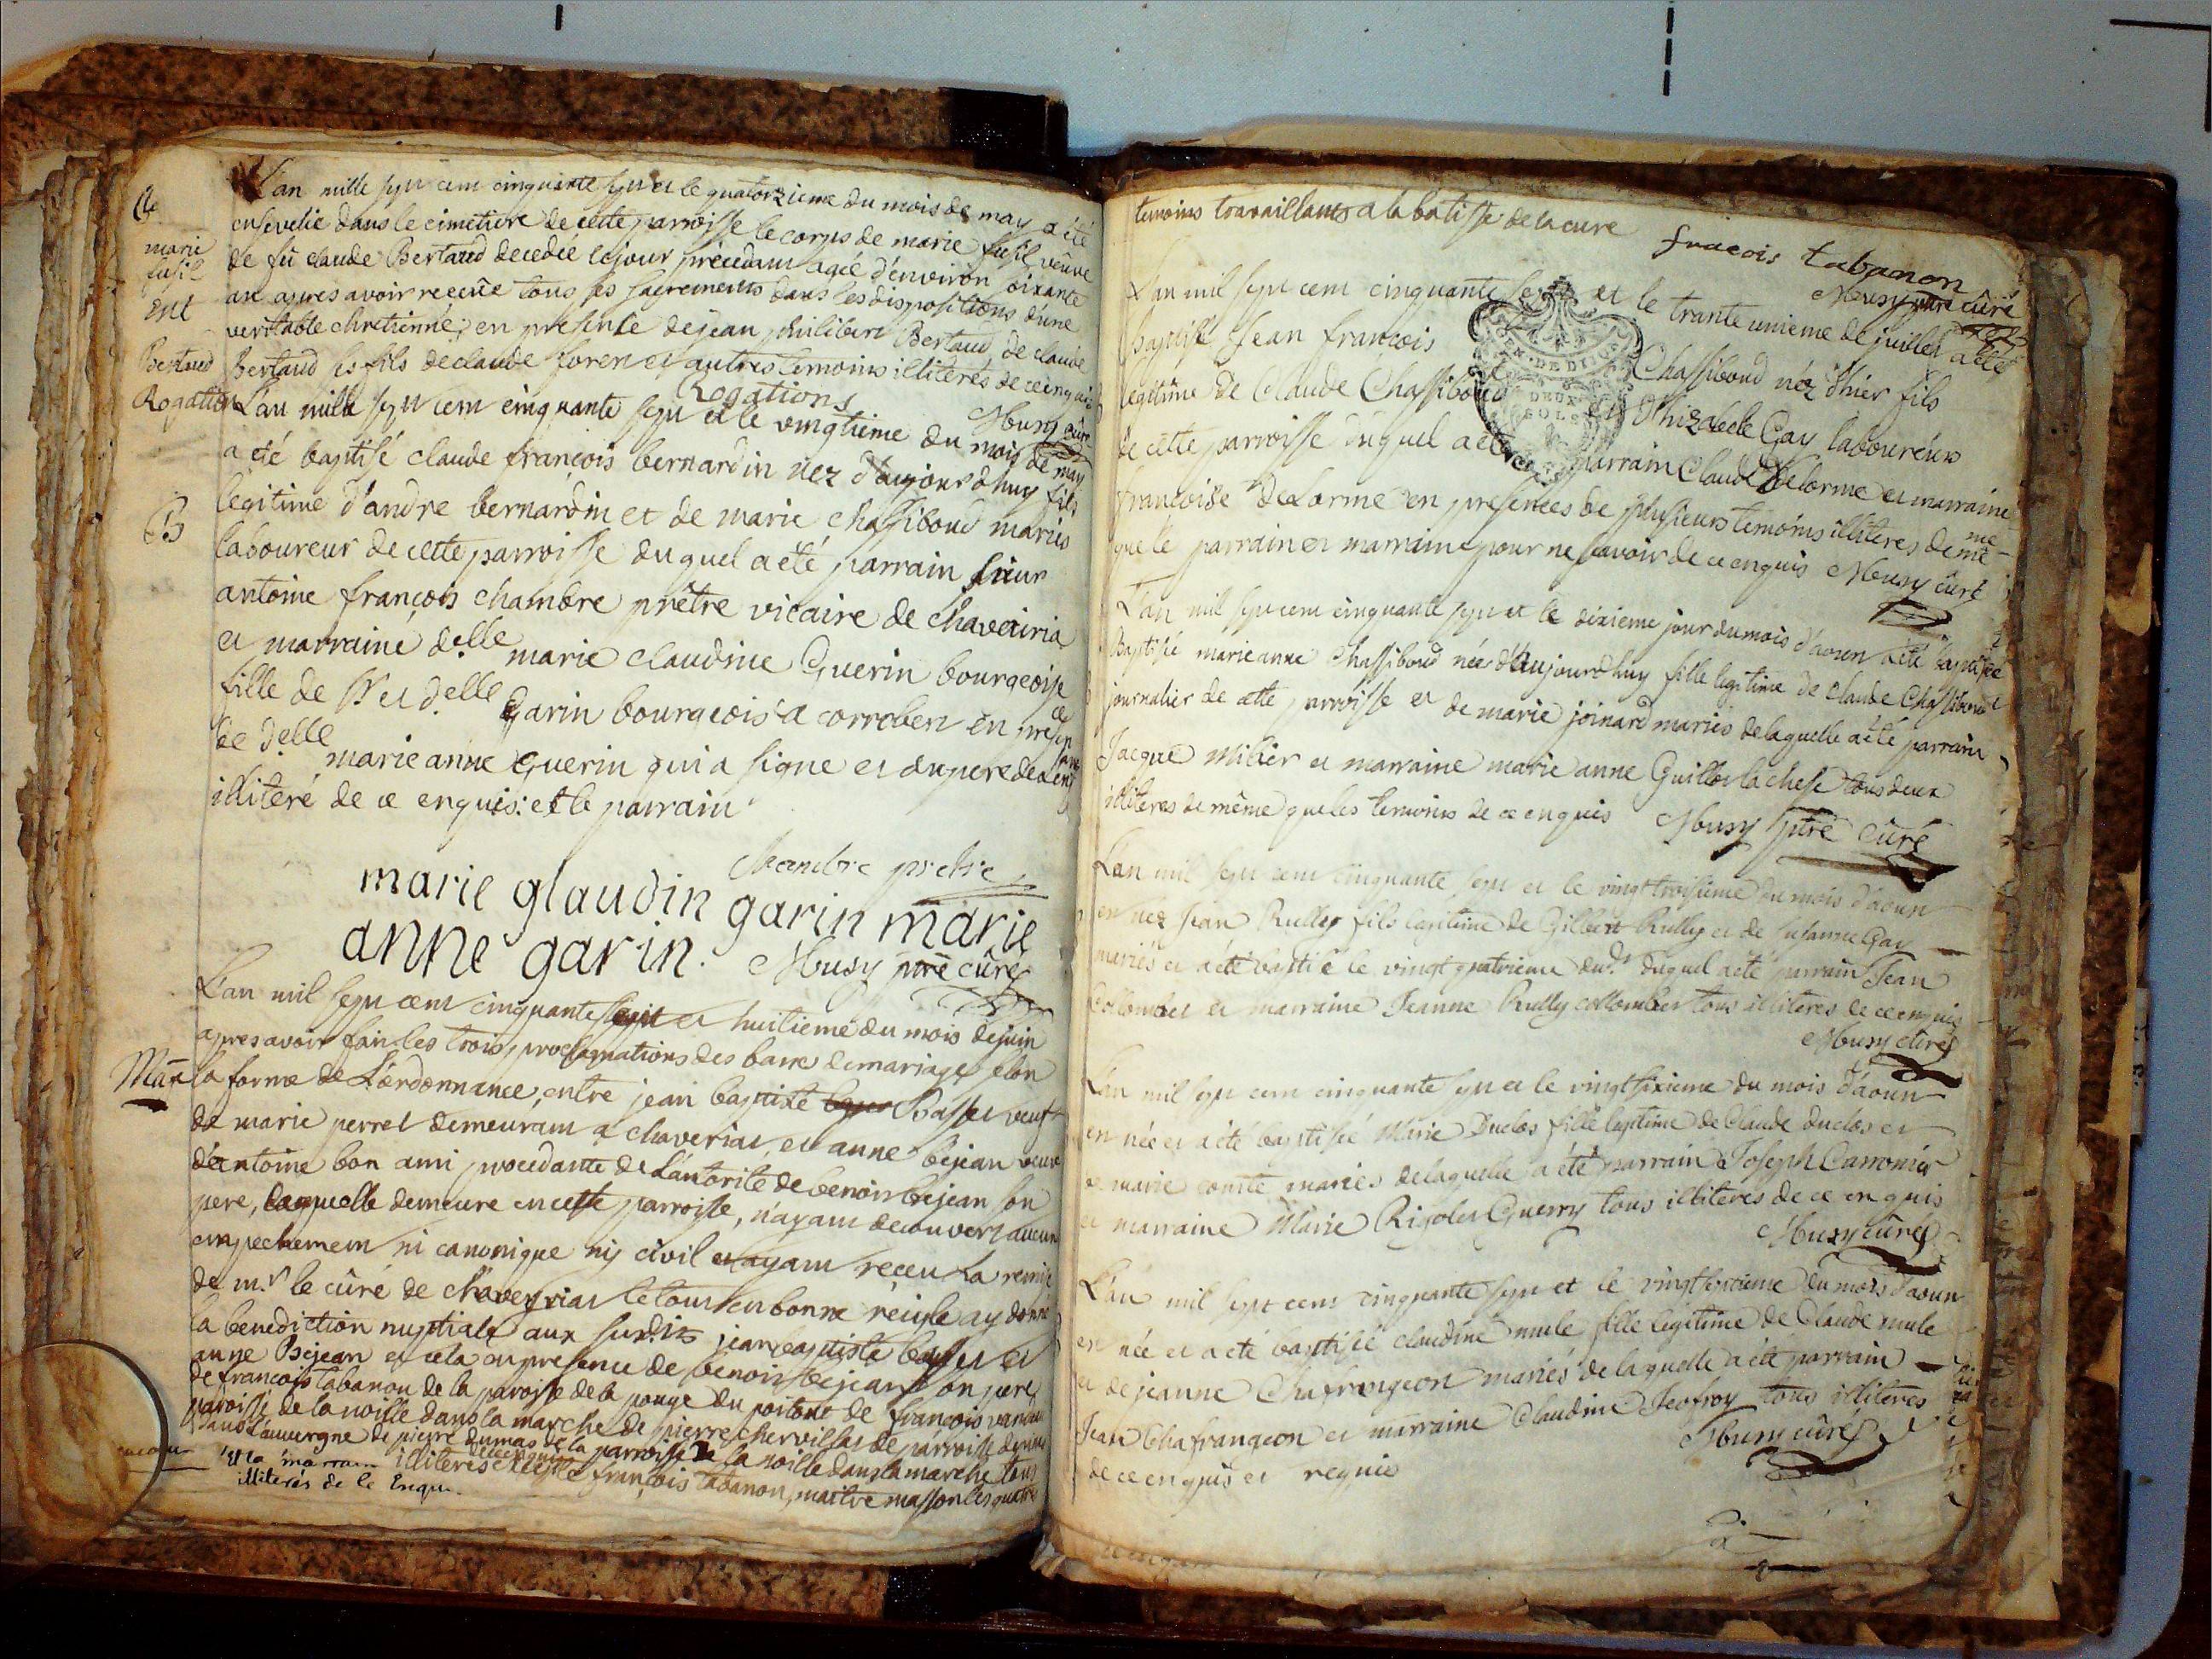 L'an mille sept cent cinquante sept et le quatorzieme du mois de may a été
ensevelie dans le cimetiere de cette parroisse le corps de marie fusil veuve
de fu claude Bertaud decedée le jour précedant agée d'environ soixante
ans apres avoir receüe tous ses sacrements dans les dispositions d'une
veritable chretienne; en presence de jean philibert Bertaud, de claude
Bertaud ses fils de claude foren et autres temoins illiteres de ce enquis
Rogations
Musy curé
marie
fusil
Ent
Bertaud
Rogation
L'an mille sept cent cinquante sept et le vingtieme du mois de may
a eté baptisé claude francois bernardin nez d'aujourdhuy fils
legitime d'andre bernardin et de marie chassiboud mariés
B
laboureur de cette parroisse du quel a eté parrain sieur
antoine françois chambre prêtre vicaire de chaveiria
et marraine delle marie claudine Guerin bourgeoise
fille de Sr et delle Garin bourgeois a corroberi en presen
ce delle marie anne Guerin qui a signe et du pere de l'enfant
illiteré de ce enquis: et le parrain
Chambre prêtre
marie glaudin garin marie
anne garin. Musy ptre curé
L'an mil sept cent cinquante sept et huitieme du mois de juin
apres avoir fait les trois proclamations des bans de mariage selon
Mar la forme de L'ordonnance, entre jean baptiste Basset veuf
de marie perret demeurant a chaveriat, et anne bejean veuve
d'antoine bon ami procedante de L'autorité de benoit bejean son
pere, laquelle demeure en cette parroisse, n'ayant decouvert aucun
empechement ni canonique ny civil et ayant receu la remise
de mr le cûré de chaveyriat le tout en bonne reigle ay donné
la benediction nuptiale aux susdits jean baptiste basset et
anne Bejean et cela en presence de benoit bejean son pere
de francois tabanon de la paroisse de la pouge du poitout de françois
paroisse de la noille dans la marche de pierre chervillat de parroisse
dans L'auvergne de pierre dumas de la parroisse de la noille dans la marche tous
illiteres de ce enquis excepté françois tabanon, maitre masson les quatre
et la marraine
illiterés de le Enqu.
temoins travaillants a la batisse de la cure
fracois tabanon
Musy ptre cûré
L'an mil sept cent cinquante sept et le trante unieme de juillet a eté
baptisé Jean françois Chassiboud néz d'hier fils
legitime de Claude Chassiboud et d'hizabele Gay laboureurs
de cette parroisse duquel a eté parrain Claude Delorme et marraine
francoise DeLorme en presences de plusieurs temoins illiteres de mê
me
que le parrain et marraine pour ne savoir de ce enquis Musy cûré
L'an mil sept cent cinquante sept et le dixieme jour du mois d'aoust a eté baptisée
Baptisée marie anne Chassiboud née d'aujourdhuy fille legitime de claude Chassiboud
journalier de cette parroisse et de marie joinard mariés de laquelle a eté parrain
Jacque Millier et marraine marie anne Guillot lachese tous deux
illiteres de même que les temoins de ce enquis Musy ptre cûré
L'an mil sept cent cinquante sept et le vingt troisieme du mois d'aoust
est néz Jean Rully fils legitime de Gilbert Rully et de susanne Gay
mariés et a eté baptisé le vingt quatrieme dud. duquel a eté parrain Jean
Collombet et marraine Jeanne Rully collombet tous illiteres de ce enquis
Musy cûré
L'an mil sept cent cinquante sept et le vingt sixieme du mois d'aoust
est née et a eté baptisée Marie Duclos fille legitime de Claude duclos et
de marie comte mariés de laquelle a eté parrain Joseph Carronier
et marraine Marie Rigolet Guerry tous illiteres de ce enquis
Musy cûré
L'an mil sept cent cinquante sept et le vingt septieme du mois d'aoust
est née et a eté baptisée claudine mule fille legitime de Claude mule
et de jeanne Chafrangeon mariés de laquelle a eté parrain
Jean Chafrangeon et marraine Claudine Jeofroy tous illiteres
de ce enquis et requis
Musy cûré